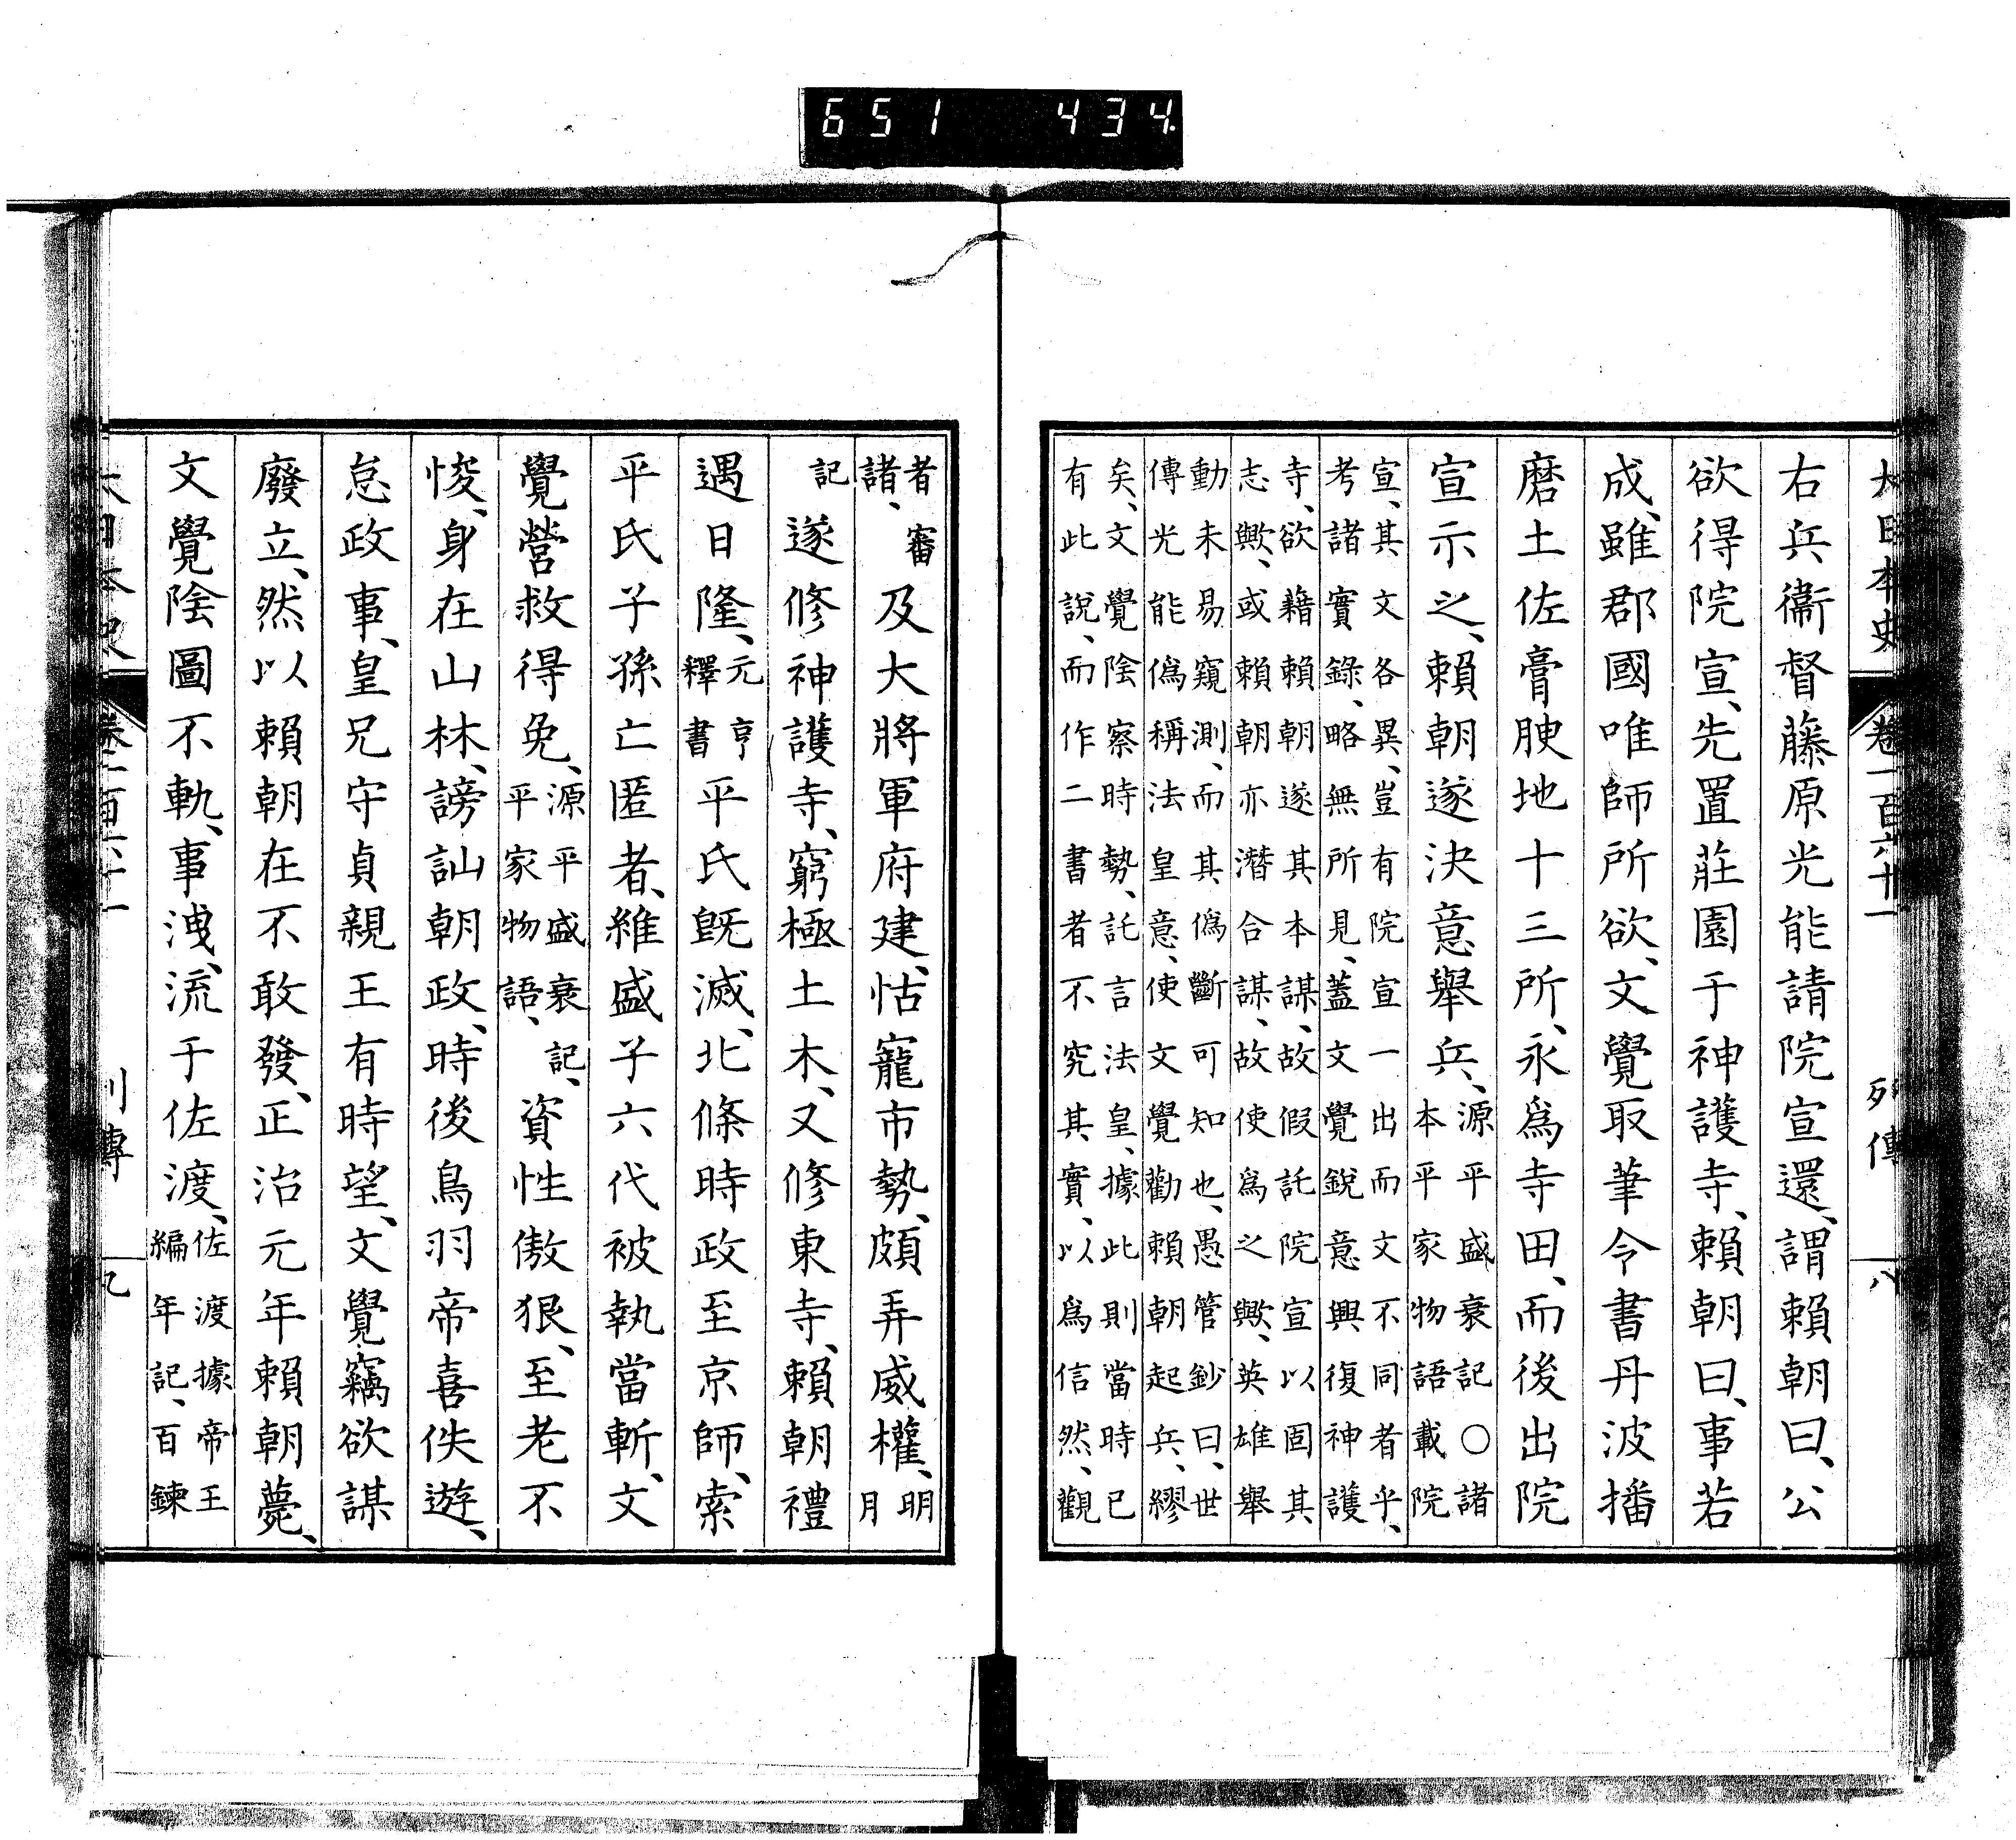 651 434
大日本史 卷一百六十一 列傳 八
右兵衞督藤原光能請院宣還、謂賴朝曰、公
欲得院宣、先置莊園于神護寺、賴朝曰、事若
成、雖郡國唯師所欲、文覺取筆令書丹波播
磨土佐膏腴地十三所、永爲寺田、而後出院
宣示之、賴朝遂決意舉兵、源平盛衰記○諸
本平家物語載院
宣、其文各異、豈有院宣一出而文不同者乎、
考諸實錄、略無所見、蓋文覺銳意興復神護
寺、欲藉賴朝遂其本謀、故假託院宣以固其
志歟、或賴朝亦潛合謀、故使爲之歟、英雄舉
動未易窺測、而其僞斷可知也、愚管鈔曰、世
傳光能僞稱法皇意、使文覺勸賴朝起兵、繆
矣、文覺陰察時勢、託言法皇、據此則當時已
有此說、而作二書者不究其實、以爲信然、觀
者審
諸、
及大將軍府建、怙寵市勢、頗弄威權、明
月
記
遂修神護寺、窮極土木、又修東寺、賴朝禮
遇日隆、元亨
釋書
平氏既滅、北條時政至京師、索
平氏子孫亡匿者、維盛子六代被執當斬、文
覺營救得免、源平盛衰記、
平家物語、
資性傲狠、至老不
悛、身在山林、謗訕朝政、時後鳥羽帝喜佚遊、
怠政事、皇兄守貞親王有時望、文覺竊欲謀
廢立、然以賴朝在不敢發、正治元年賴朝薨、
文覺陰圖不軌、事洩、流于佐渡、佐渡據帝王
編年記、百鍊
大日本史 卷一百六十一 列傳 九